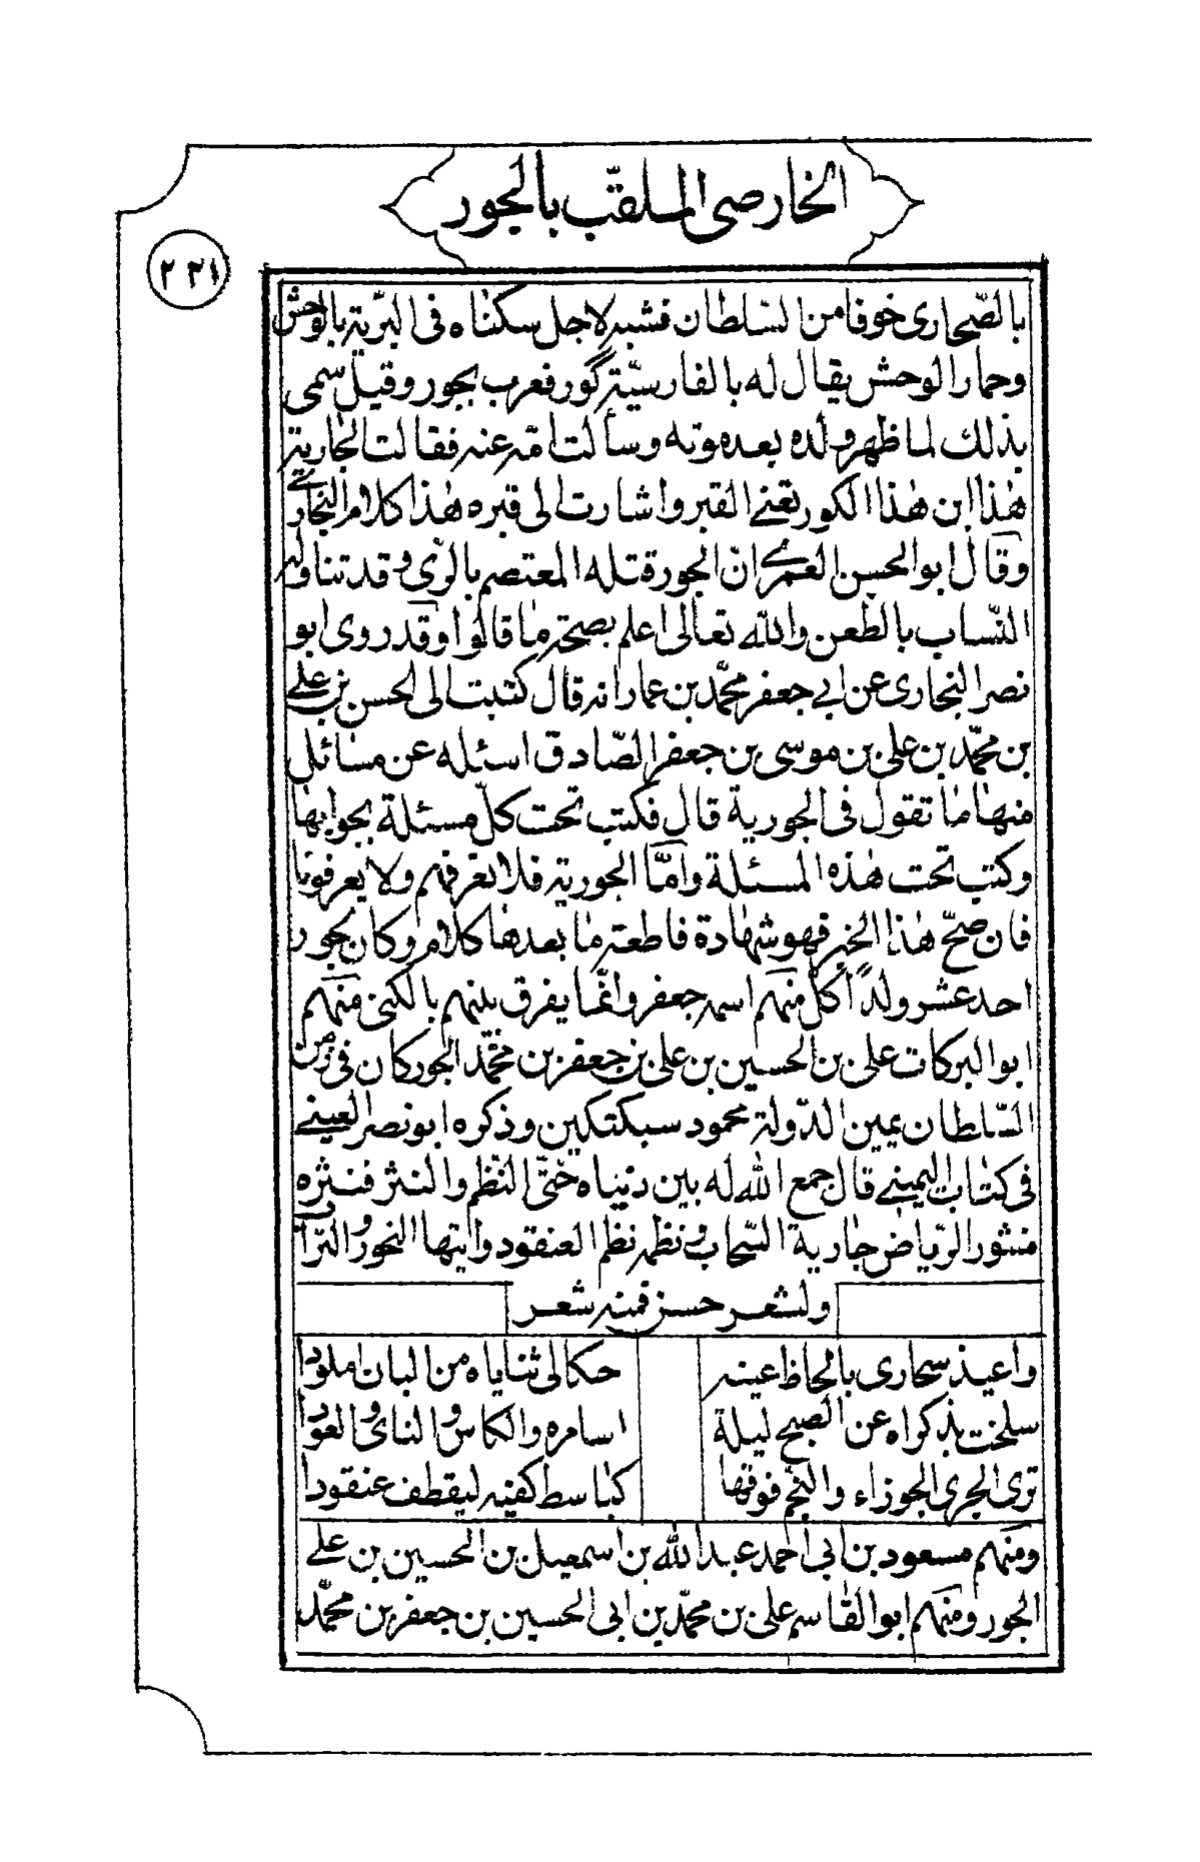 الخارصى الملقّب بالجور
٢٣١
بالصّحارى خوفا من السّلطان فشبه لاجل سكناه فى البرّية بالوحش
وحمار الوحش يقال له بالفارسيّة گور فعرب بجور وقيل سمى
بذلك لما ظهر ولده بعد موته وسألت امّه عنه فقالت الجارية
هذا ابن هذا الكور تعنى القبر واشارت الى قبره هذا كلام البخارى
وقال ابو الحسن العمرى انّ الجور قتله المعتصم بالرّى وقد تناوله
النّساب بالطعن والله تعالى اعلم بصحة ما قالوا وقد روى ابو
نصر البخارى عن ابى جعفر محمّد بن عمار انه قال كتبت الى الحسن بن على
بن محمّد بن على بن موسى بن جعفر الصّادق اسئله عن مسائل
منها ما تقول فى الجورية قال فكتب تحت كلّ مسئلة بجوابها
وكتب تحت هذه المسئلة وامّا الجورية فلا نعرفهم ولا يعرفونا
فان صحّ هذا الخبر فهو شهادة قاطعة ما بعدها كلام وكان بجور
احد عشر ولدًا كلّ منهم اسمه جعفر وانّما يفرق بينهم بالكنى منهم
ابو البركات على بن الحسين بن على بن جعفر بن محمّد الجور كان فى زمن
السّلطان يمين الدّولة محمود سبكتكين وذكره ابو نصر العينى
فى كتاب اليمينى قال جمع الله له بين دنياه حتّى النّظم والنثر فنثره
منثور الرّياض جارية السّحاب ونظمه نظم العنقود وايتها النحور والترآ
ولشعر حسن فمنه شعر
واعيذ سحارى بالحاظ عينه
حكا لى ثناياه من البان املودا
سلخت بذكراه عن الصبح ليلة
اسامره والكاس والناى والعودا
ترى الجرى الجوزاء والنجم فوقها
كباسط كفيه ليقطف عنقودا
ومنهم مسعود بن ابى احمد عبد الله بن اسمعيل بن الحسين بن على
الجور ومنهم ابو القاسم على بن محمّد بن ابى الحسين بن جعفر بن محمّد